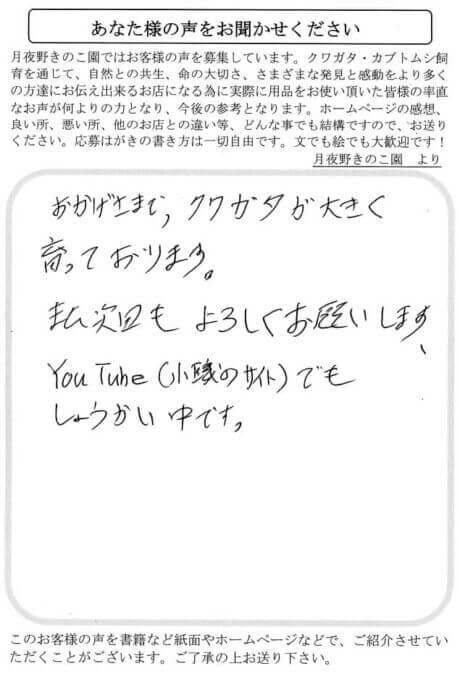 あなた様の声をお聞かせください
月夜野きのこ園ではお客様の声を募集しています。クワガタ・カブトムシ飼
育を通じて、自然との共生、命の大切さ、さまざまな発見と感動をより多く
の方達にお伝え出来るお店になる為に実際に用品をお使い頂いた皆様の率直
なお声が何よりの力となり、今後の参考となります。ホームページの感想、
良い所、悪い所、他のお店との違い等、どんな事でも結構ですので、お送り
ください。応募はがきの書き方は一切自由です。文でも絵でも大歓迎です！
月夜野きのこ園　より
おかげさまで、クワガタが大きく
育っております。
次回も よろしくお願いします
YouTube(小 のサイト)でも
しょうかい中です。
このお客様の声を書籍など紙面やホームページなどで、ご紹介させてい
ただくことがございます。ご了承の上お送り下さい。